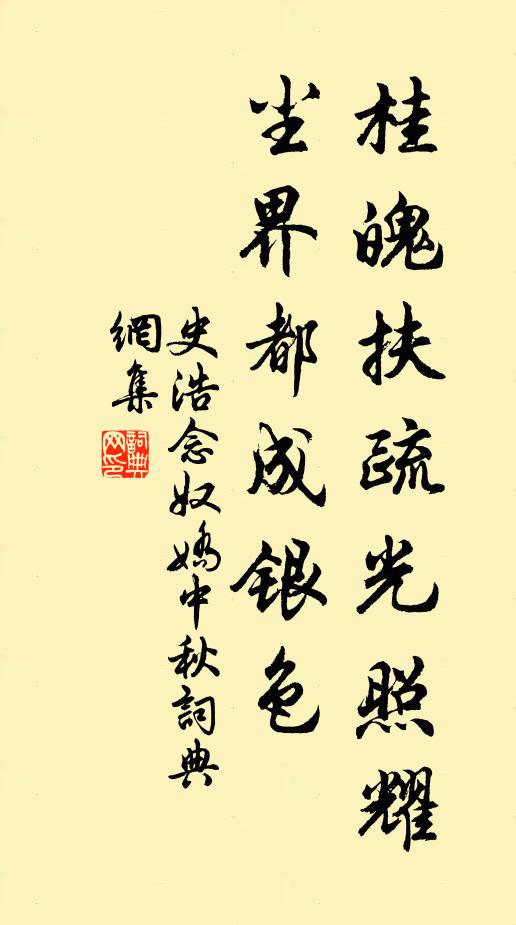 桂魄扶疏光照耀
尘界都成銀色
史浩念奴嬌中秋詞典
網集
詞典
网印